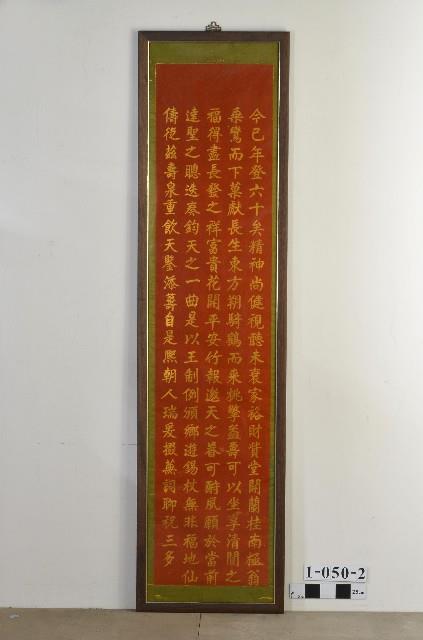 今已年登六十矣精神尚健視聽未衰家裕財貲堂開蘭桂南極翁
乘鸞而下菓献長生東方朔騎鶴而來桃擎益壽可以坐享清閒之
福得盡長發之祥富貴花開平安竹報邀天之眷可酧夙願於當前
達聖之聰迭奏鈞天之一曲是以王制例頒鄉遊錫杖無非福地仙
儔從茲壽泉重飲天鑒添籌自是熙朝人瑞爰掇蕪詞聊祝三多
1-050-2